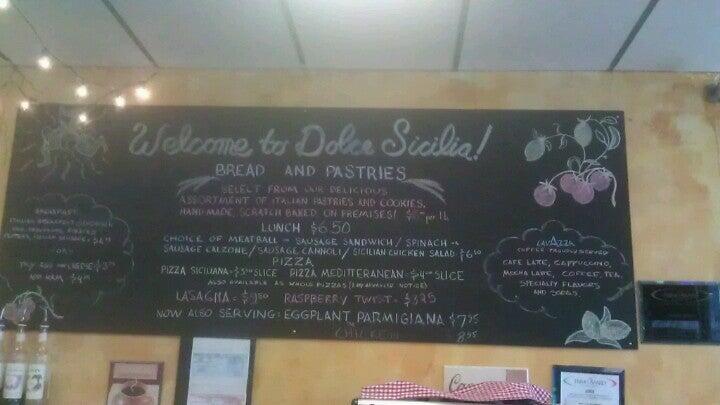 Welcome to Dolce Sicilia!
BREAD AND PASTRIES
SELECT FROM OUR DELICIOUS
ASSORTMENT OF ITALIAN PASTRIES AND COOKIES.
HAND-MADE, SCRATCH BAKED ON PREMISES! per LB
LUNCH $6.50
CHOICE OF MEATBALL - SAUSAGE SANDWICH / SPINACH
SAUSAGE CALZONE / SAUSAGE CANNOLI / SICILIAN CHICKEN SALAD $6.50
PIZZA
PIZZA SICILIANA = SLICE PIZZA MEDITERRANEAN SLICE
ALSO AVAILABLE AS WHOLE PIZZAS
LASAGNA = RASPBERRY TWIST = $3.25
NOW ALSO SERVING: EGGPLANT PARMIGIANA $7.95
CHICKEN 8.95
BREAKFAST
ITALIAN BREAKFAST SANDWICH
OR
ADD HAM
LAVAZZA
COFFEE PROUDLY SERVED
CAFE LATE, CAPPUCCINO,
MOCHA LATE, COFFEE, TEA,
SPECIALTY FLAVORS
AND SODAS.